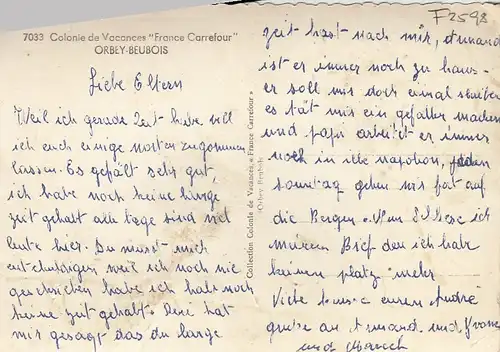 7033 Colonie de Vacances "France Carrefour"
ORBEY-BEUBOIS
Liebe Eltern
Weil ich gerade Zeit habe will
ich euch einige worten zugommen
lassen. Es gefält sehr gut,
ich habe noch keine lange
zeit gehabt alle tage sind viel
leute hier. Du musst mich
entschuldigen weil ich noch nie
geschrieben habe ich hab noch
keine zeit gehabt. René hat
mir gesagt das du lange
Collection Colonie de Vacances, « France Carrefour »
Orbey Beubois
F2598
zeit hast nach mir, Armand
ist er immer noch zu haus-
er soll mir doch einmal schreiben
es tät mir ein gefallen machen
und papa arbeitet er immer
noch in ille napoleon, jeden
sonntag gehen mir fart auf
die Bergen. Nun Schliese ich
meinen Brief den ich habe
keinen platz mehr
Viele euren André
grüse an Armand und Yvonne
und